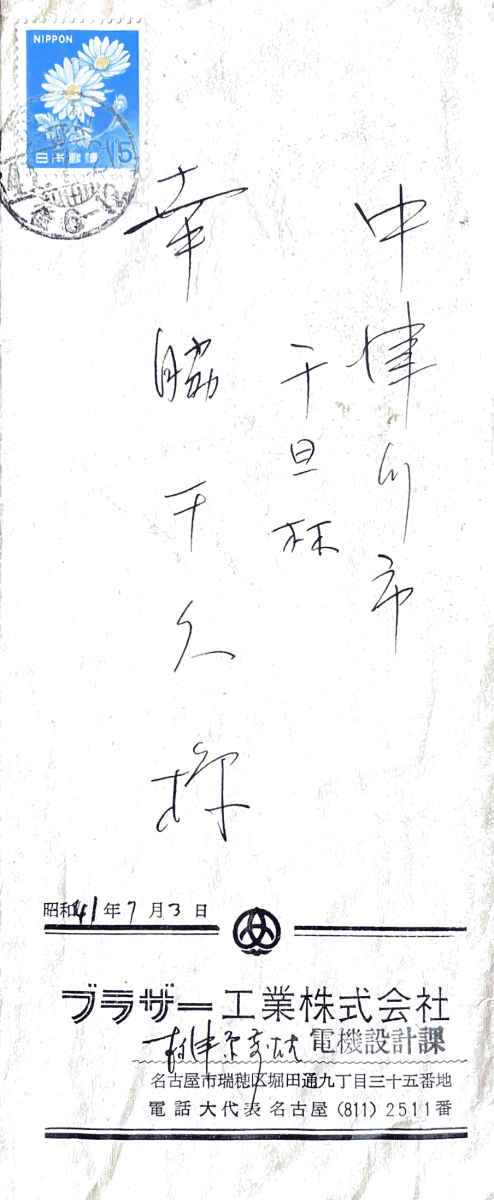 NIPPON
15
日本郵便
中津川市
千旦林
幸脇千久様
昭和41年7月3日
ブラザー工業株式会社
電機設計課
名古屋市瑞穂区堀田通九丁目三十五番地
電話 大代表 名古屋 (811) 2511番